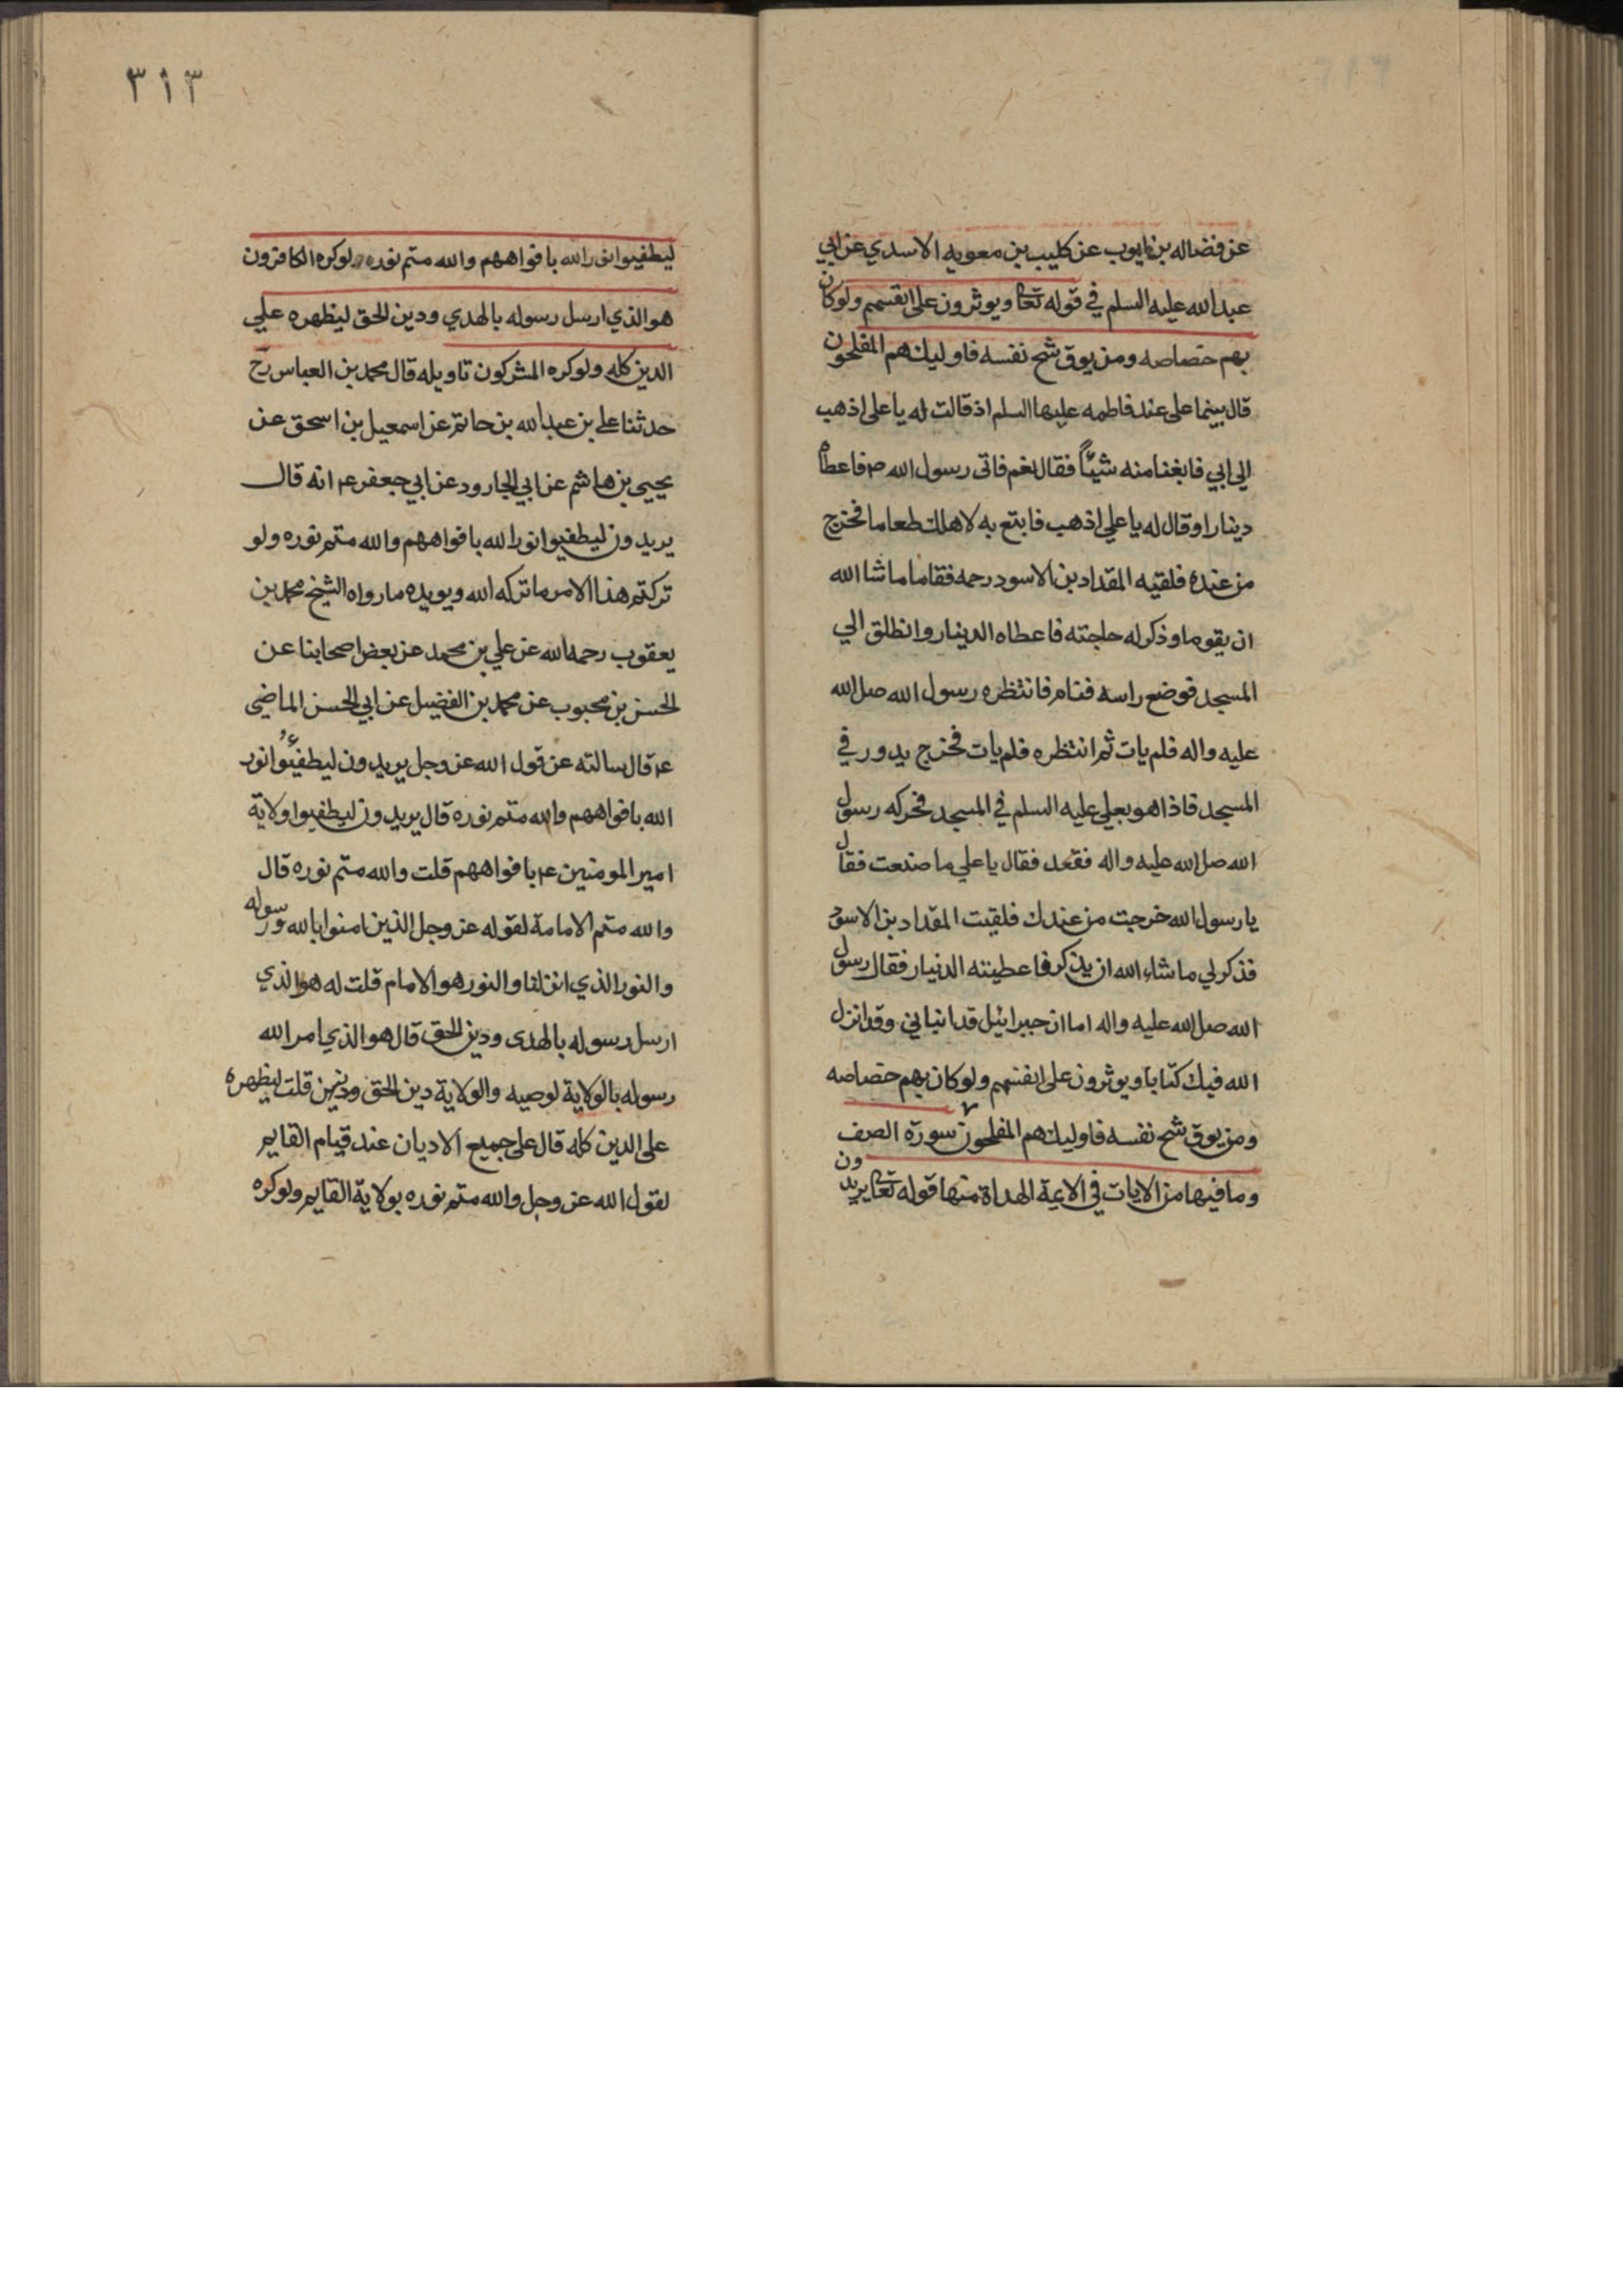 عن فضاله بن ايوب عن كليب بن معويه الاسدي عن ابي
عبد الله عليه السلم في قوله تعا ويوثرون على انفسهم ولوكان
بهم خصاصه ومن يوق شح نفسه فاوليك هم المفلحون
قال بينما على عند فاطمه عليها السلم اذ قالت له يا على اذهب
الي ابي فابغنا منه شيئا فقال نعم فاتى رسول الله ص فاعطاه
دينارا وقال له يا علي اذهب فابتع به لاهلك طعاما فخرج
من عنده فلقيه المقداد بن الاسود رحمه فقاما ما شا الله
ان يقوما وذكر له حاجته فاعطاه الدينار وانطلق الي
المسجد فوضع راسه فنام فانتظره رسول الله صل الله
عليه واله فلم يات ثم انتظره فلم يات فخرج يدور في
المسجد فاذا هو بعلي عليه السلم في المسجد فحركه رسول
الله صل الله عليه واله فقعد فقال يا علي ما صنعت فقال
يا رسول الله خرجت من عندك فلقيت المقداد بن الاسود
فذكر لي ما شاء الله ان يذكر فاعطيته الدنيار فقال رسول
الله صل الله عليه واله اما ان جبرائيل قد انباني وقد انزل
الله فيك كتابا ويوثرون على انفسهم ولوكان بهم خصاصه
ومن يوق شح نفسه فاوليك هم المفلحون سورة الصف
وما فيها من الايات في الايمة الهداة منها قوله تعا يريدون
٣١٣
ليطفيوا نور الله بافواههم والله متم نوره ولوكره الكافرون
هو الذي ارسل رسوله بالهدي ودين الحق ليظهره علي
الدين كله ولوكره المشركون تاويله قال محمد بن العباس رح
حدثنا علي بن عبد الله بن حاتم عن اسمعيل بن اسحق عن
يحيي بن هاشم عن ابي الجارود عن ابي جعفر ع انه قال
يريدون ليطفيوا نور الله بافواههم والله متم نوره ولو
تركتم هذا الامر ما تركه الله ويويده ما رواه الشيخ محمد بن
يعقوب رحمه الله عن علي بن محمد عن بعض اصحابنا عن
الحسن بن محبوب عن محمد بن الفضيل عن ابي الحسن الماضي
ع قال سالته عن قول الله عز وجل يريدون ليطفئوا نور
الله بافواههم والله متم نوره قال يريدون ليطفيوا ولاية
امير المومنين ع بافواههم قلت والله متم نوره قال
والله متم الامامة لقوله عز وجل الذين امنوا بالله ورسوله
والنور الذي انزلنا والنور هو الامام قلت له هو الذي
ارسل رسوله بالهدى ودين الحق قال هو الذي امر الله
رسوله بالولاية لوصيه والولاية دين الحق قلت ليظهره
على الدين كله قال على جميع الاديان عند قيام القايم
لقول الله عز وجل والله متم نوره بولاية القايم ولوكره